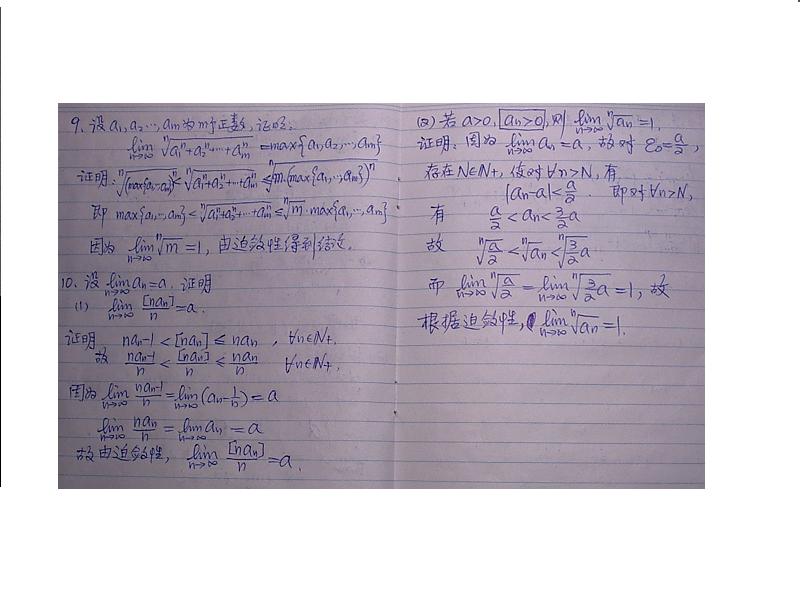 9. 设 a₁, a₂ …, aₘ 为 m 个正数, 证明:
lim_{n→∞} ⁿ√(a₁ⁿ+a₂ⁿ+…+aₘⁿ) = max{a₁, a₂, …, aₘ}
证明: ⁿ√((max{a₁,…,aₘ})ⁿ) < ⁿ√(a₁ⁿ+a₂ⁿ+…+aₘⁿ) ≤ ⁿ√(m·(max{a₁,…,aₘ})ⁿ)
即 max{a₁,…,aₘ} < ⁿ√(a₁ⁿ+a₂ⁿ+…+aₘⁿ) ≤ ⁿ√m · max{a₁,…,aₘ}
因为 lim_{n→∞} ⁿ√m = 1, 由迫敛性得到结论.
10. 设 lim_{n→∞} aₙ = a. 证明
(1) lim_{n→∞} [naₙ]/n = a.
证明. naₙ-1 < [naₙ] ≤ naₙ, ∀n∈N₊.
故 (naₙ-1)/n < [naₙ]/n ≤ naₙ/n ∀n∈N₊,
因为 lim_{n→∞} (naₙ-1)/n = lim_{n→∞} (aₙ-1/n) = a
lim_{n→∞} naₙ/n = lim_{n→∞} aₙ = a
故由迫敛性, lim_{n→∞} [naₙ]/n = a.
(2) 若 a>0, aₙ>0, 则 lim_{n→∞} ⁿ√aₙ = 1.
证明: 因为 lim_{n→∞} aₙ = a, 故对 ε₀ = a/2,
存在 N∈N₊, 使对 ∀n>N, 有
|aₙ-a| < a/2. 即对 ∀n>N,
有 a/2 < aₙ < 3/2 a
故 ⁿ√(a/2) < ⁿ√aₙ < ⁿ√(3/2 a)
而 lim_{n→∞} ⁿ√(a/2) = lim_{n→∞} ⁿ√(3/2 a) = 1, 故
根据迫敛性, lim_{n→∞} ⁿ√aₙ = 1.